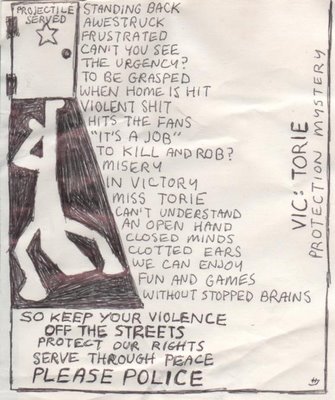 PROJECTILE
SERVED
STANDING BACK
AWESTRUCK
FRUSTRATED
CAN'T YOU SEE
THE URGENCY?
TO BE GRASPED
WHEN HOME IS HIT
VIOLENT SHIT
HITS THE FANS
"IT'S A JOB"
TO KILL AND ROB?
MISERY
IN VICTORY
MISS TORIE
CAN'T UNDERSTAND
AN OPEN HAND
CLOSED MINDS
CLOTTED EARS
WE CAN ENJOY
FUN AND GAMES
WITHOUT STOPPED BRAINS
SO KEEP YOUR VIOLENCE
OFF THE STREETS
PROTECT OUR RIGHTS
SERVE THROUGH PEACE
PLEASE POLICE
VIC: TORIE
PROTECTION MYSTERY